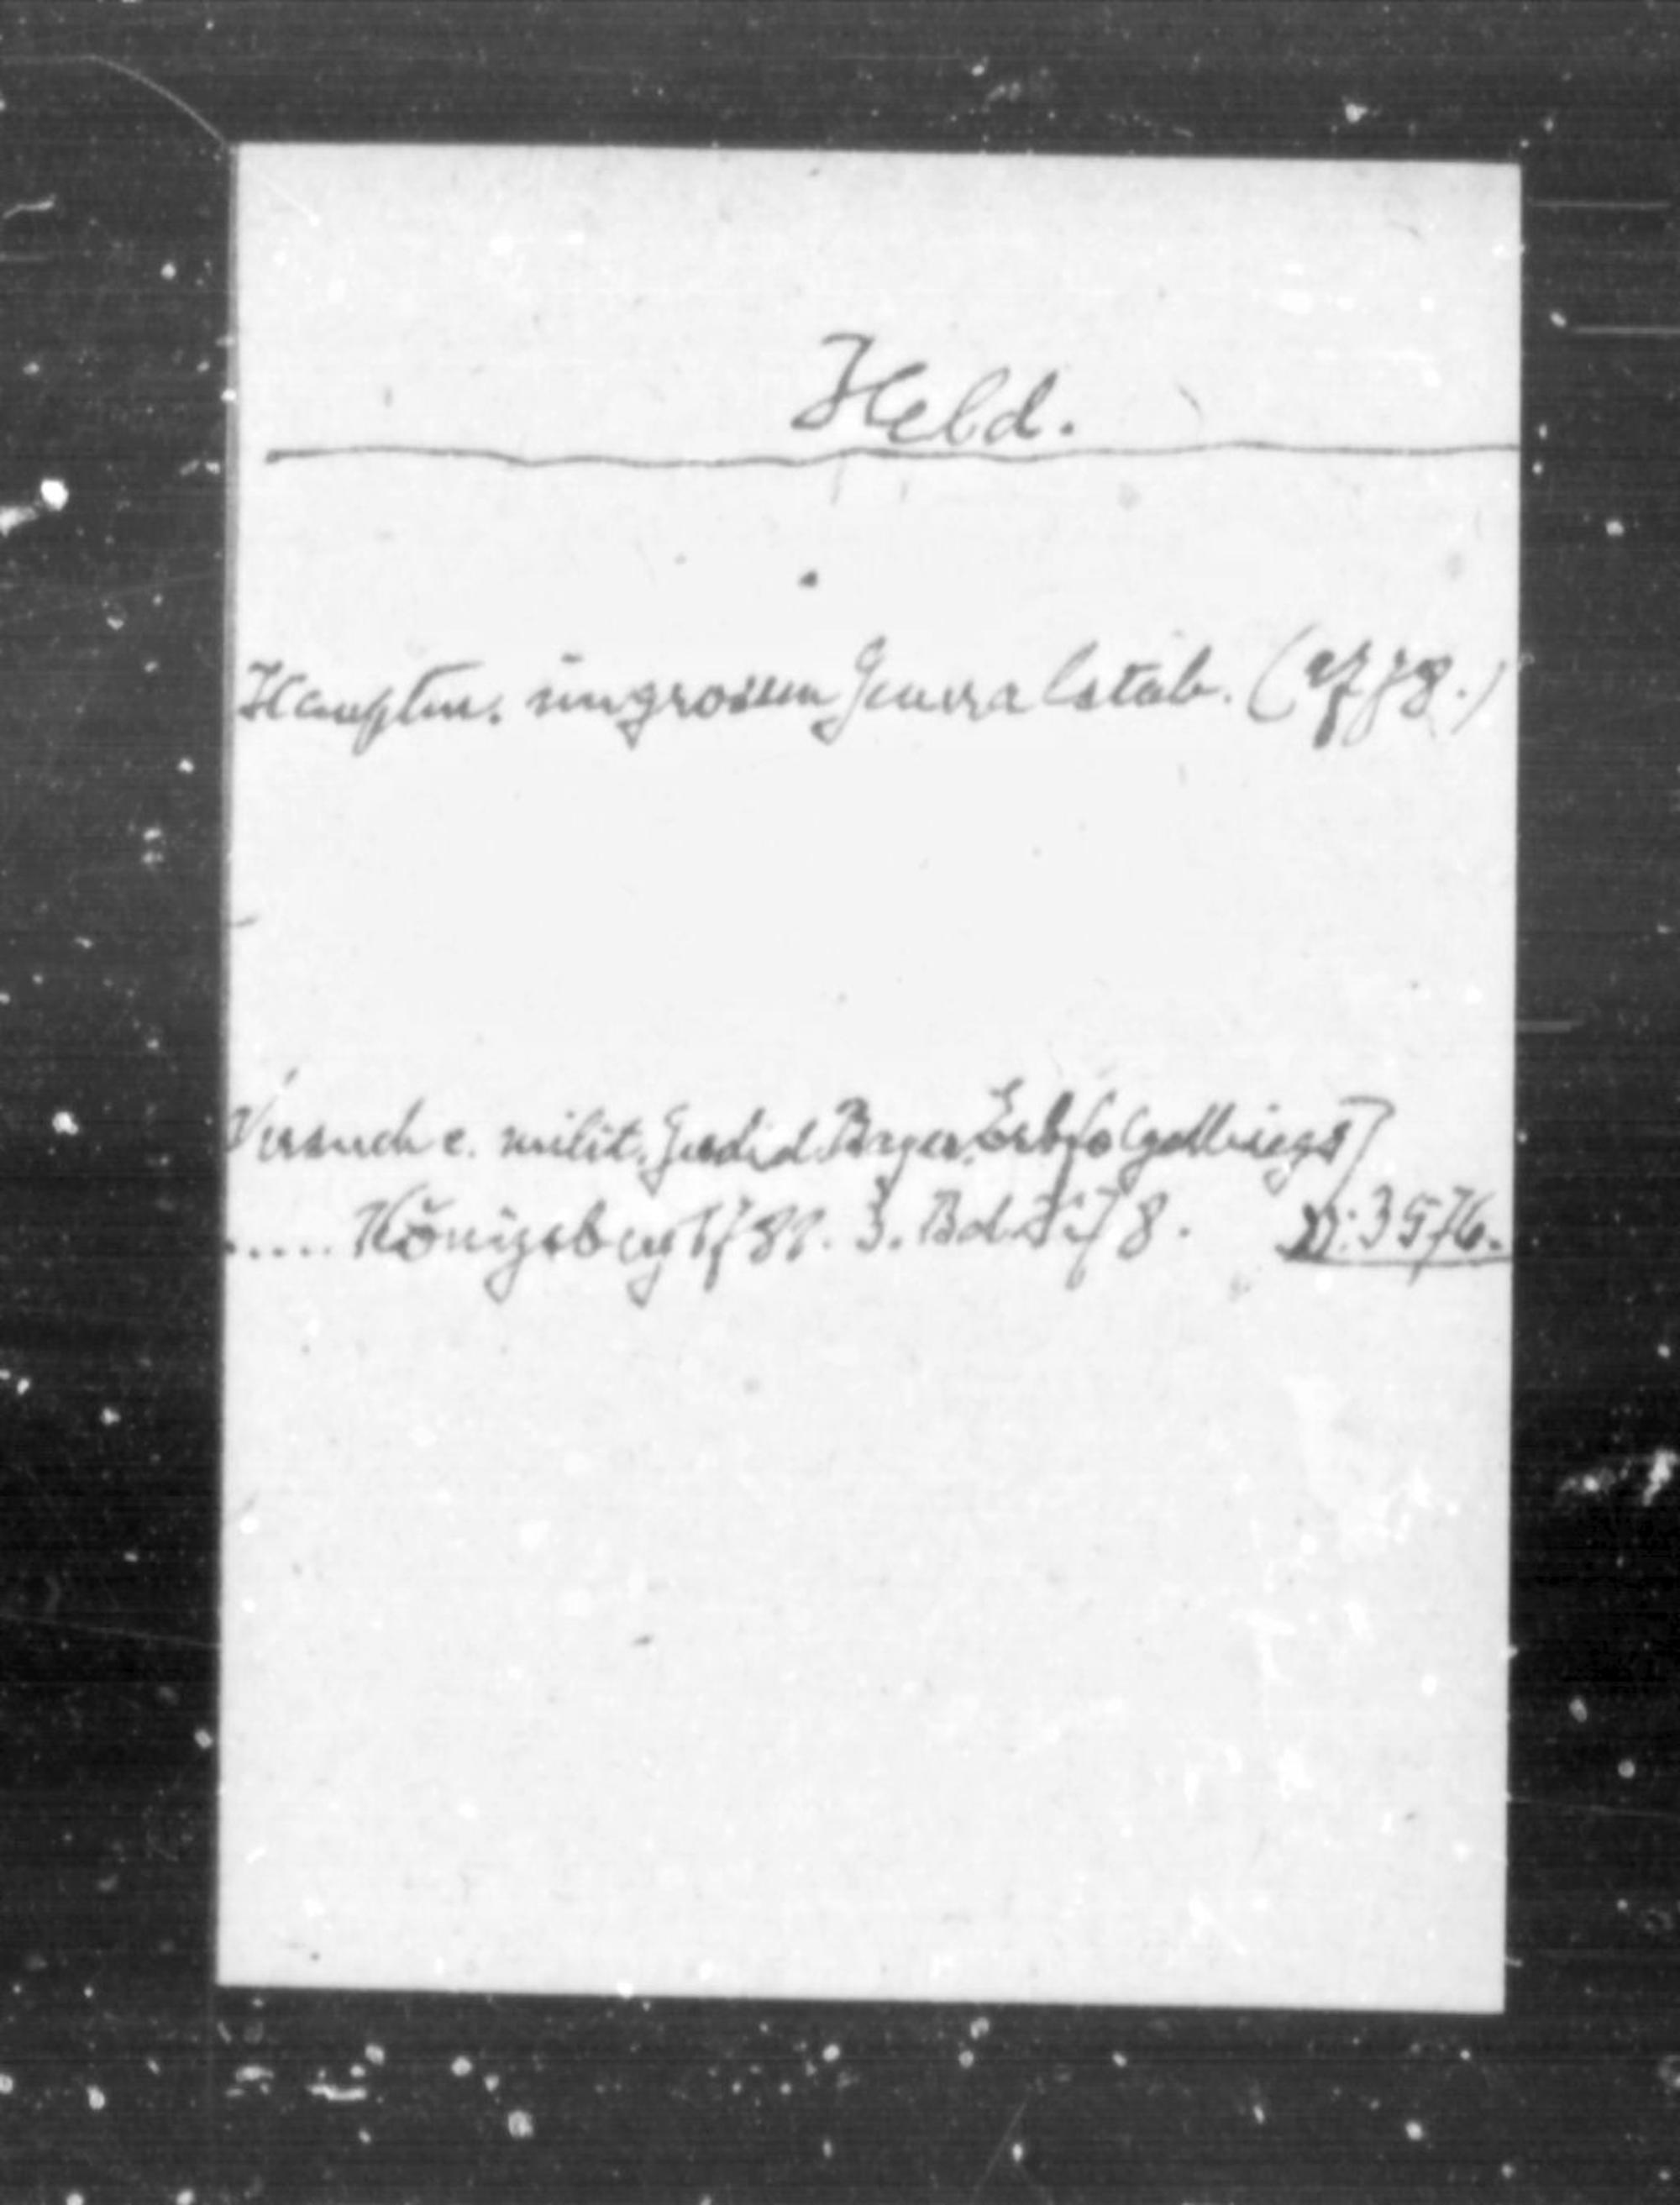 Held.
Hauptm. im grossen Generalstab. (1778.)
Versuch e. milit. Gesch. d. Bayer. Erbfolgekriegs
..... Königsberg 1781. 3. Bd. 8. D: 3576.